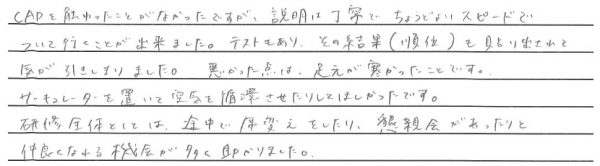 CADを触わったことがなかったですが、説明は丁寧でちょうどよいスピードで
ついて行くことが出来ました。テストもあり、その結果(順位)を貼り出されて
気が引きしまりました。悪かった点は、足元が寒かったことです。
サーキュレーターを置いて空気を循環させたりしてほしかったです。
研修全体としては、途中で席変えをしたり、懇親会があったりと
仲良くなれる機会が多く助かりました。